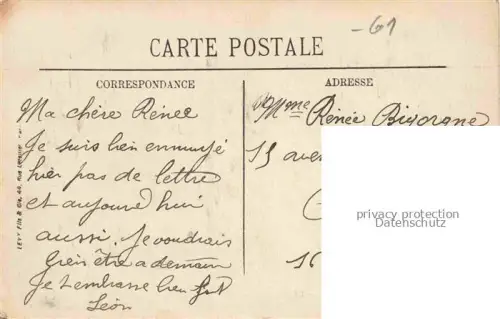 -61
CARTE POSTALE
CORRESPONDANCE
ADRESSE
Ma chère Rénee
Je suis bien ennuyé
hier pas de lettre
et aujourd'hui
aussi. Je voudrais
bien être a demain
Je t'embrasse bien fort
Léon
Mme Rénée
15 aven
16
privacy protection
Datenschutz
LEVY Fils & Cie, 44, rue